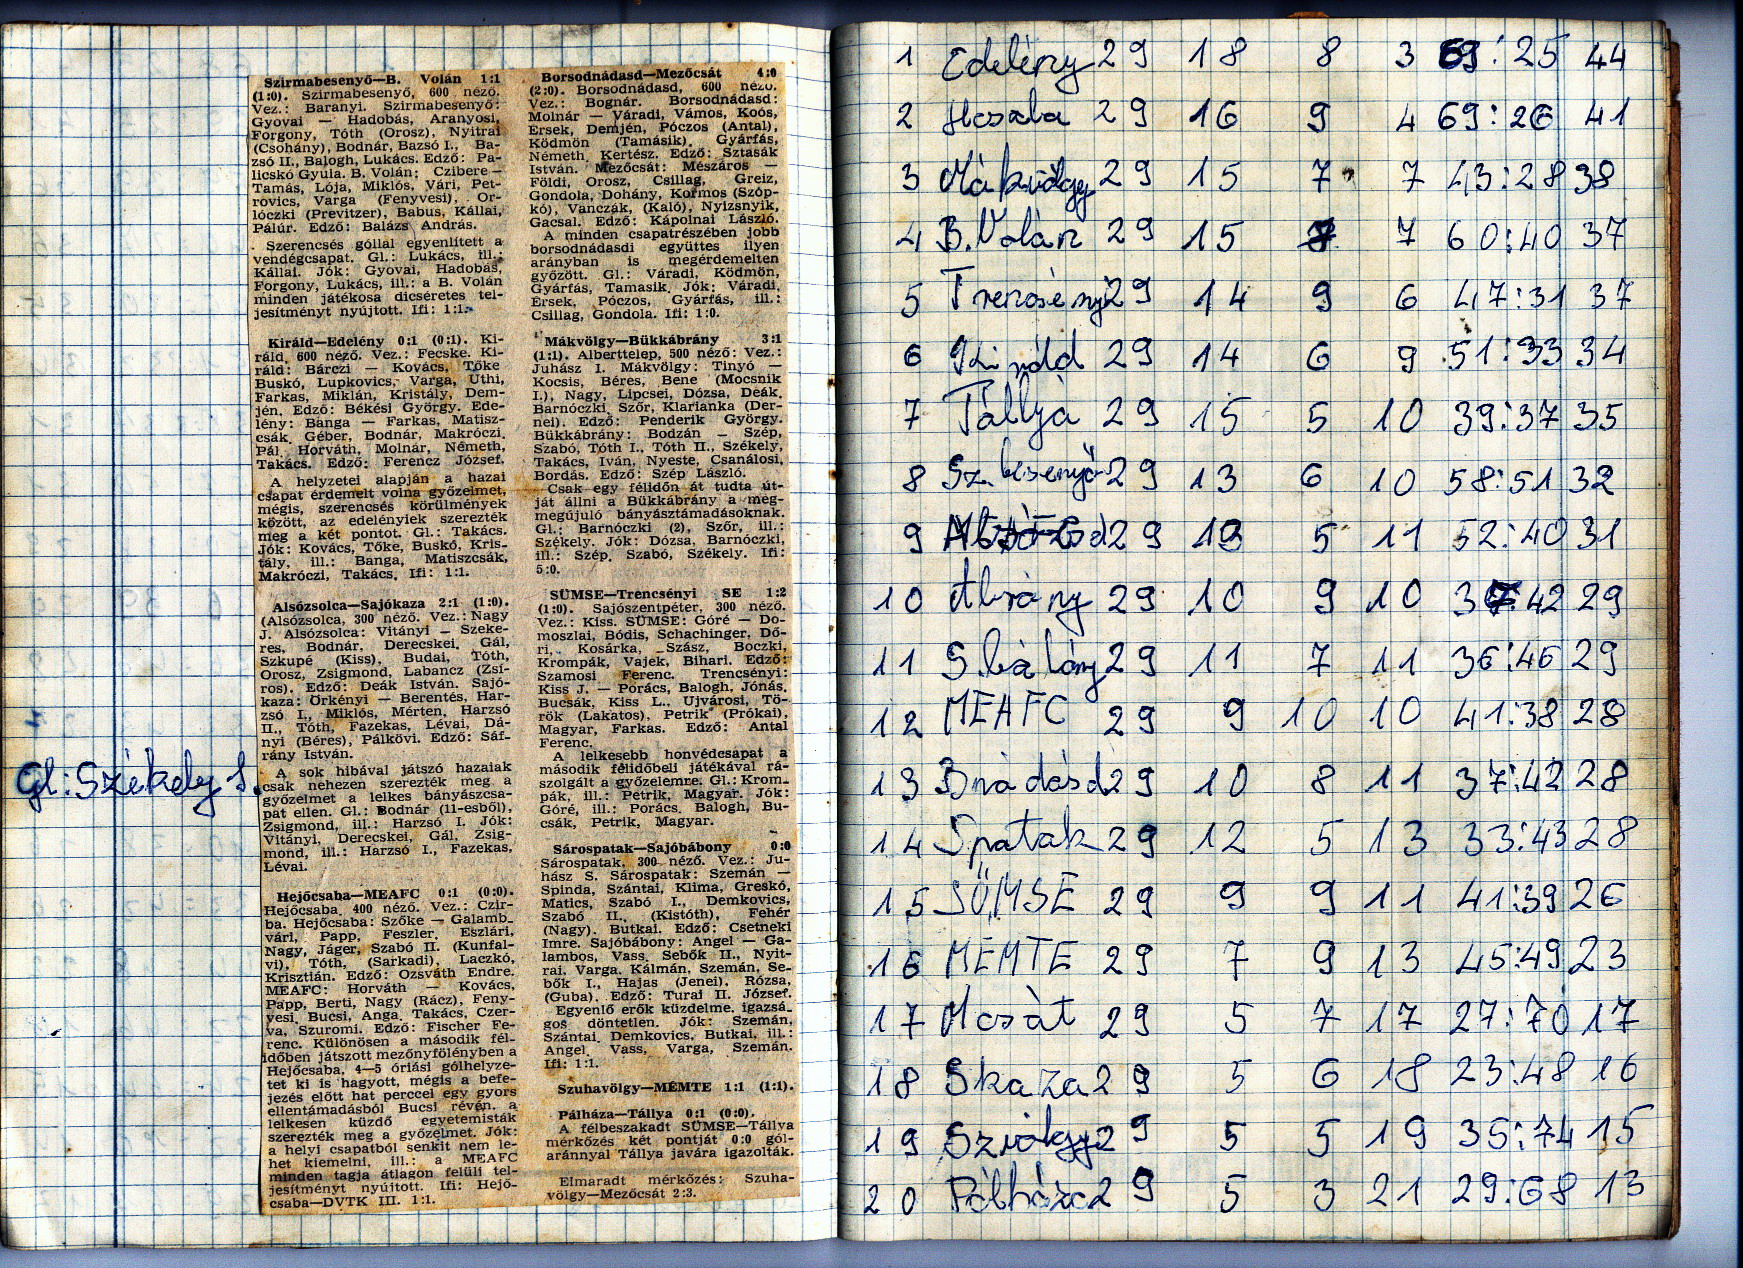 Szirmabesenyő—B. Volán 1:1
(1:0). Szirmabesenyő, 600 néző.
Vez.: Baranyi. Szirmabesenyő:
Gyovai — Hadobás, Aranyosi,
Forgony, Tóth (Orosz), Nyitrai
(Csohány), Bodnár, Bazsó I., Ba-
zsó II., Balogh, Lukács. Edző: Pa-
licskó Gyula. B. Volán: Czibere —
Tamás, Lója, Miklós, Vári, Pet-
rovics, Varga (Fenyvesi), Or-
lóczki (Previtzer), Babus, Kállai,
Pálúr. Edző: Balázs András.
Szerencsés góllal egyenlített a
vendégcsapat. Gl.: Lukács, ill.:
Kállai. Jók: Gyovai, Hadobás,
Forgony, Lukács, ill.: a B. Volán
minden játékosa dicséretes tel-
jesítményt nyújtott. Ifi: 1:1.
Királd—Edelény 0:1 (0:1). Ki-
ráld, 600 néző. Vez.: Fecske. Ki-
ráld: Bárczi — Kovács, Tőke
Buskó, Lupkovics, Varga, Uthi,
Farkas, Miklán, Kristály, Dem-
jén. Edző: Békési György. Ede-
lény: Banga — Farkas, Matisz-
csák, Géber, Bodnár, Makróczi,
Pál, Horváth, Molnár, Németh,
Takács. Edző: Ferencz József.
A helyzetei alapján a hazai
csapat érdemelt volna győzelmet,
mégis, szerencsés körülmények
között, az edelényiek szerezték
meg a két pontot. Gl.: Takács.
Jók: Kovács, Tőke, Buskó, Kris-
tály, ill.: Banga, Matiszcsák,
Makróczi, Takács. Ifi: 1:1.
Alsózsolca—Sajókaza 2:1 (1:0).
(Alsózsolca, 300 néző. Vez.: Nagy
J. Alsózsolca: Vitányi — Szeke-
res, Bodnár, Derecskei, Gál,
Szkupé (Kiss), Budai, Tóth,
Orosz, Zsigmond, Labancz (Zsí-
ros). Edző: Deák István. Sajó-
kaza: Örkényi — Berentés, Har-
zsó I., Miklós, Mérten, Harzsó
II., Tóth, Fazekas, Lévai, Dá-
nyi (Béres), Pálkövi. Edző: Sáf-
rány István.
A sok hibával játszó hazaiak
csak nehezen szerezték meg a
győzelmet a lelkes bányászcsa-
pat ellen. Gl.: Bodnár (11-esből),
Zsigmond, ill.: Harzsó I. Jók:
Vitányi, Derecskei, Gál, Zsig-
mond, ill.: Harzsó I., Fazekas,
Lévai.
Hejőcsaba—MEAFC 0:1 (0:0).
Hejőcsaba, 400 néző. Vez.: Czir-
ba. Hejőcsaba: Szőke — Galamb-
vári, Papp, Feszler, Eszlári,
Nagy, Jáger, Szabó II. (Kunfal-
vi), Tóth, (Sarkadi), Laczkó,
Krisztián. Edző: Ozsváth Endre.
MEAFC: Horváth — Kovács,
Papp, Berti, Nagy (Rácz), Feny-
vesi, Bucsi, Anga, Takács, Czer-
va, Szuromi. Edző: Fischer Fe-
renc. Különösen a második fél-
időben játszott mezőnyfölényben a
Hejőcsaba, 4—5 óriási gólhelyze-
tet ki is hagyott, mégis a befe-
jezés előtt hat perccel egy gyors
ellentámadásból Bucsi révén, a
lelkesen küzdő egyetemisták
szerezték meg a győzelmet. Jók:
a helyi csapatból senkit nem le-
het kiemelni, ill.: a MEAFC
minden tagja átlagon felüli tel-
jesítményt nyújtott. Ifi: Hejő-
csaba—DVTK III. 1:1.
Borsodnádasd—Mezőcsát 4:0
(2:0). Borsodnádasd, 600 néző.
Vez.: Bognár. Borsodnádasd:
Molnár — Váradi, Vámos, Koós,
Érsek, Demjén, Póczos (Antal),
Ködmön (Tamásik), Gyárfás,
Németh, Kertész. Edző: Sztasák
István. Mezőcsát: Mészáros —
Földi, Orosz, Csillag, Greiz,
Gondola, Dohány, Kormos (Szóp-
kó), Vanczák, (Kaló), Nyizsnyik,
Gacsal. Edző: Kápolnai László.
A minden csapatrészében jobb
borsodnádasdi együttes ilyen
arányban is megérdemelten
győzött. Gl.: Váradi, Ködmön,
Gyárfás, Tamasik. Jók: Váradi,
Érsek, Póczos, Gyárfás, ill.:
Csillag, Gondola. Ifi: 1:0.
Mákvölgy—Bükkábrány 3:1
(1:1). Alberttelep, 500 néző: Vez.:
Juhász I. Mákvölgy: Tinyó —
Kocsis, Béres, Bene (Mocsnik
I.), Nagy, Lipcsei, Dózsa, Deák,
Barnóczki, Szőr, Klarianka (Der-
nei). Edző: Penderik György.
Bükkábrány: Bodzán — Szép,
Szabó, Tóth I., Tóth II., Székely,
Takács, Iván, Nyeste, Csanálosi,
Bordás. Edző: Szép László.
Csak egy félidőn át tudta út-
ját állni a Bükkábrány a meg-
megújuló bányásztámadásoknak.
Gl.: Barnóczki (2), Szőr, ill.:
Székely. Jók: Dózsa, Barnóczki,
ill.: Szép, Szabó, Székely. Ifi:
5:0.
SÜMSE—Trencsényi SE 1:2
(1:0). Sajószentpéter, 300 néző.
Vez.: Kiss. SÜMSE: Góré — Do-
moszlai, Bódis, Schachinger, Dő-
ri, Kosárka, Szász, Boczki,
Krompák, Vajek, Bihari. Edző:
Szamosi Ferenc. Trencsényi:
Kiss J. — Porács, Balogh, Jónás,
Bucsák, Kiss L., Ujvárosi, Tö-
rök (Lakatos), Petrik (Prókai),
Magyar, Farkas. Edző: Antal
Ferenc.
A lelkesebb honvédcsapat a
második félidőbeli játékával rá-
szolgált a győzelemre. Gl.: Krom-
pák, ill.: Petrik, Magyar. Jók:
Góré, ill.: Porács, Balogh, Bu-
csák, Petrik, Magyar.
Sárospatak—Sajóbábony 0:0
Sárospatak, 300 néző. Vez.: Ju-
hász S. Sárospatak: Szemán —
Spinda, Szántai, Klima, Greskó,
Matics, Szabó I., Demkovics,
Szabó II., (Kistóth), Fehér
(Nagy). Butkai. Edző: Csetneki
Imre. Sajóbábony: Angel — Ga-
lambos, Vass, Sebők II., Nyit-
rai, Varga, Kálmán, Szemán, Se-
bők I., Hajas (Jenei), Rózsa,
(Guba). Edző: Turai II. József.
Egyenlő erők küzdelme, igazsá-
gos döntetlen. Jók: Szemán,
Szántai, Demkovics, Butkai, ill.:
Angel, Vass, Varga, Szemán.
Ifi: 1:1.
Szuhavölgy—MÉMTE 1:1 (1:1).
Pálháza—Tállya 0:1 (0:0).
A félbeszakadt SÜMSE—Tállya
mérkőzés két pontját 0:0 gól-
aránnyal Tállya javára igazolták.
Elmaradt mérkőzés: Szuha-
völgy—Mezőcsát 2:3.
Gl.: Székely I.
1 Edelény 29 18 8 3 69:25 44
2 Hcsaba 29 16 9 4 69:26 41
3 Mákvölgy 29 15 7 7 43:28 38
4 B. Volán 29 15 7 7 60:40 37
5 Trencsényi 29 14 9 6 47:31 37
6 Királd 29 14 6 9 51:33 34
7 Tállya 29 15 5 10 39:37 35
8 Sz.besenyő 29 13 6 10 58:51 32
9 29 13 5 11 52:40 31
10 Ábrány 29 10 9 10 42 29
11 S.bábony 29 11 7 11 36:46 29
12 MEAFC 29 9 10 10 41:38 28
13 Bnádasd 29 10 8 11 37:42 28
14 Spatak 29 12 5 13 33:43 28
15 SÜMSE 29 9 9 11 41:39 26
16 MÉMTE 29 7 9 13 45:49 23
17 Mcsát 29 5 7 17 27:70 17
18 Skaza 29 5 6 18 23:48 16
19 Szvölgy 29 5 5 19 35:74 15
20 Pálháza 29 5 3 21 29:68 13